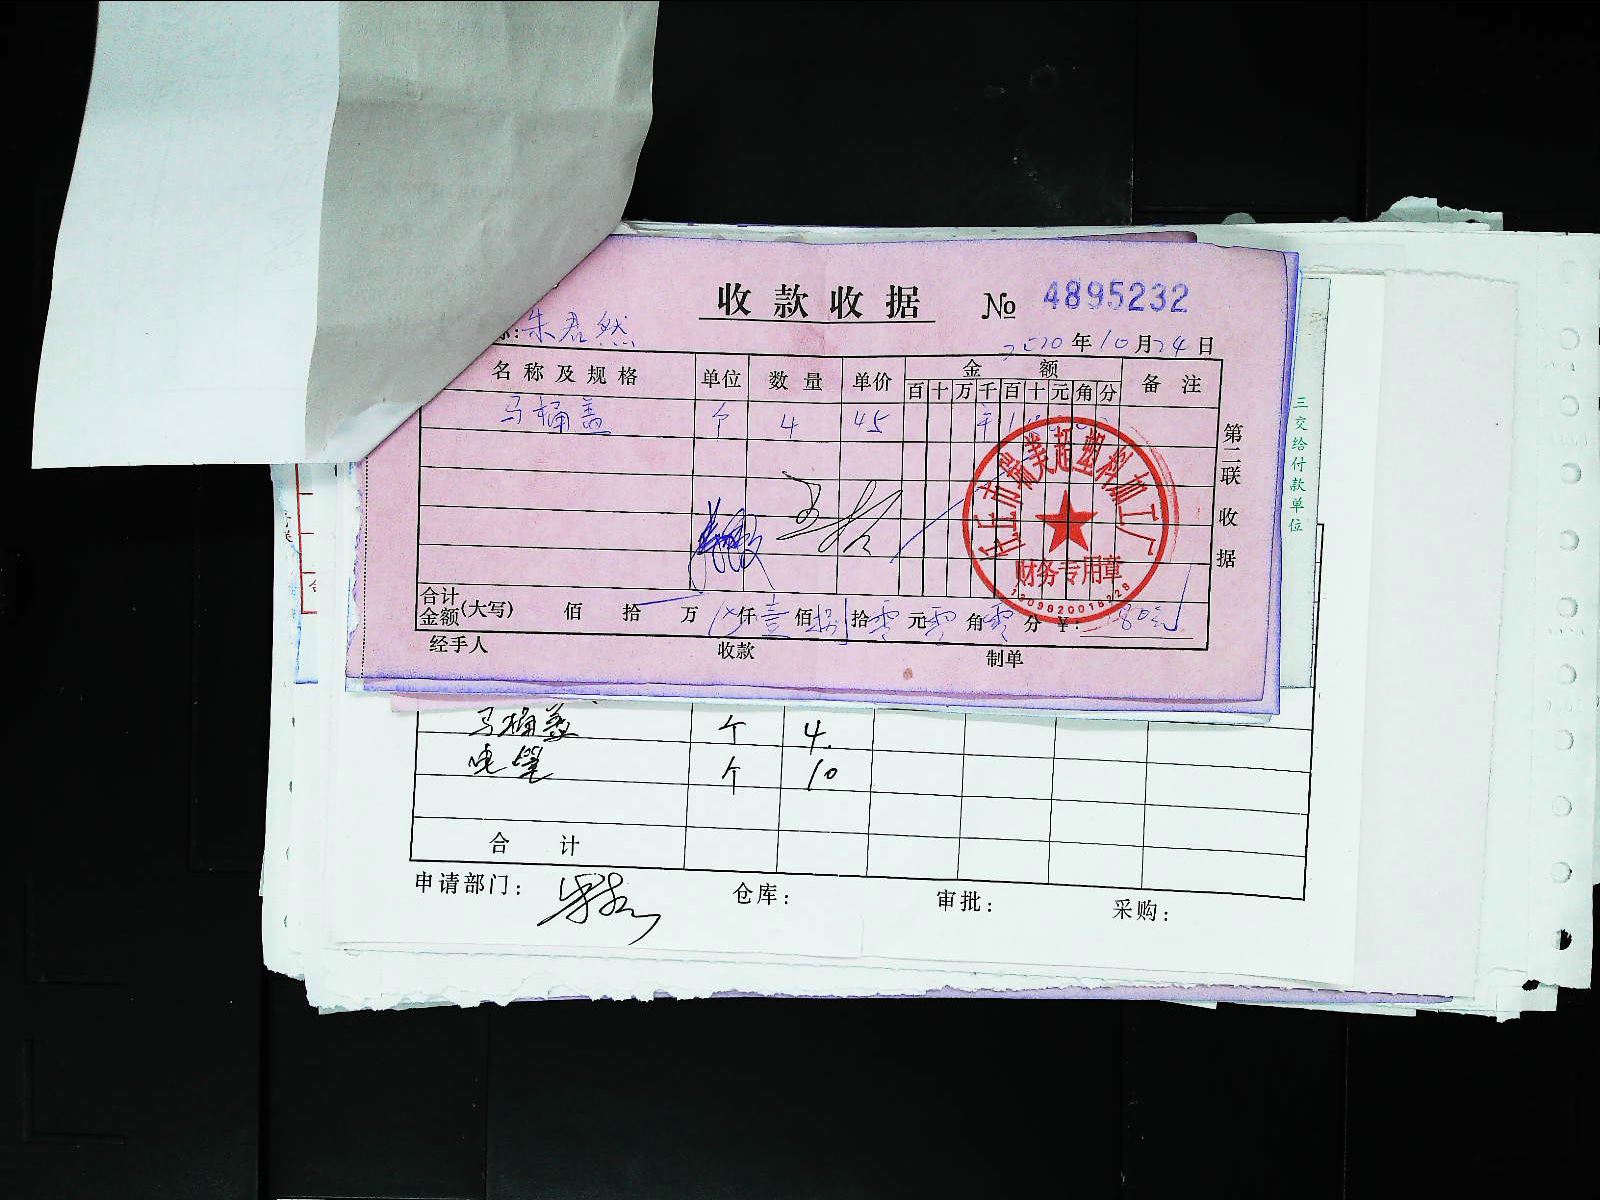 收款收据 № 4895232
朱君然
2020年10月24日
名称及规格 单位 数量 单价 金额 备注
百十万千百十元角分
马桶盖 个 4 45
第二联 收据
三交给付款单位
财务专用章
合计金额(大写) 佰 拾 万 仟壹佰捌拾零元零角零分 ¥: 180元
经手人 收款 制单
马桶盖 个 4
电笔 个 10
合计
申请部门: 仓库: 审批: 采购: